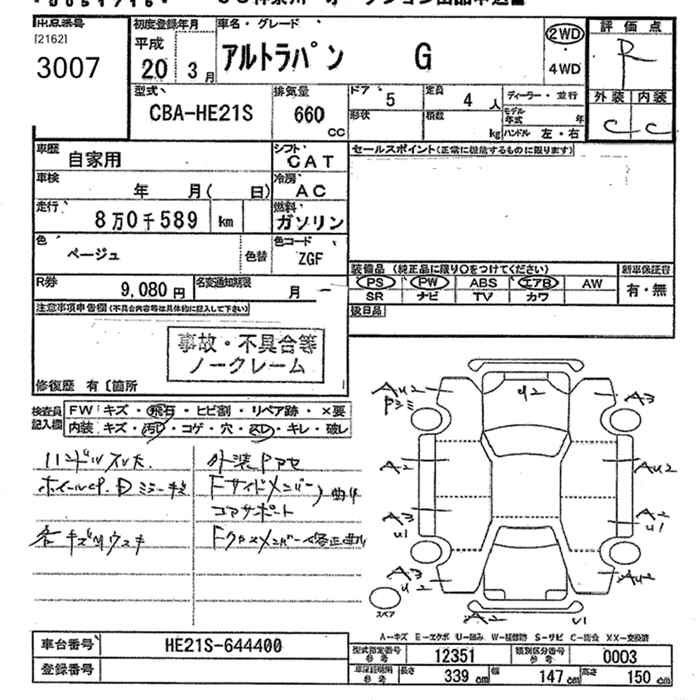 出品番号 初度登録年月 車名・グレード 評価点
[2162] 平成 アルトラパン G 2WD R
3007 20 年 3 月 4WD
型式 排気量 ドア 5 定員 4 人 ディーラー・並行 外装 内装
CBA-HE21S 660 cc 形状 積載 kg モデル年式 年 C C
ハンドル 左・右
車歴 自家用 シフト CAT セールスポイント(正常に機能するものに限ります)
車検 年 月( 日) 冷房 AC
走行 8万0千589 km 燃料 ガソリン
色 ベージュ 色替 色コード ZGF
装備品 (純正品に限り○をつけてください) 新車保証書
R券 9,080 円 名変通知期限 月 PS PW ABS エアB AW 有・無
SR ナビ TV カワ
注意事項申告欄(不具合内容等は具体的に記入して下さい) 後日品
事故・不具合等
ノークレーム
修復歴 有〔箇所
検査員記入欄 FW キズ・飛石・ヒビ割・リペア跡・×要
内装 キズ・汚れ・コゲ・穴・スレ・キレ・破レ
ハンドルスレ大 外装
Fサイドメンバー 曲り
コアサポート
各キズ Fクロスメンバー 修正
U2
A3
A2
A3
U1
U2
AU2
A2
U1
AU2
スペア
A2
U1
A-キズ E-エクボ U-凹み W-補修跡 S-サビ C-腐食 XX-交換済
車台番号 HE21S-644400 型式指定番号 参考 12351 類別区分番号 参考 0003
登録番号 長さ 339 cm 幅 147 cm 高さ 150 cm